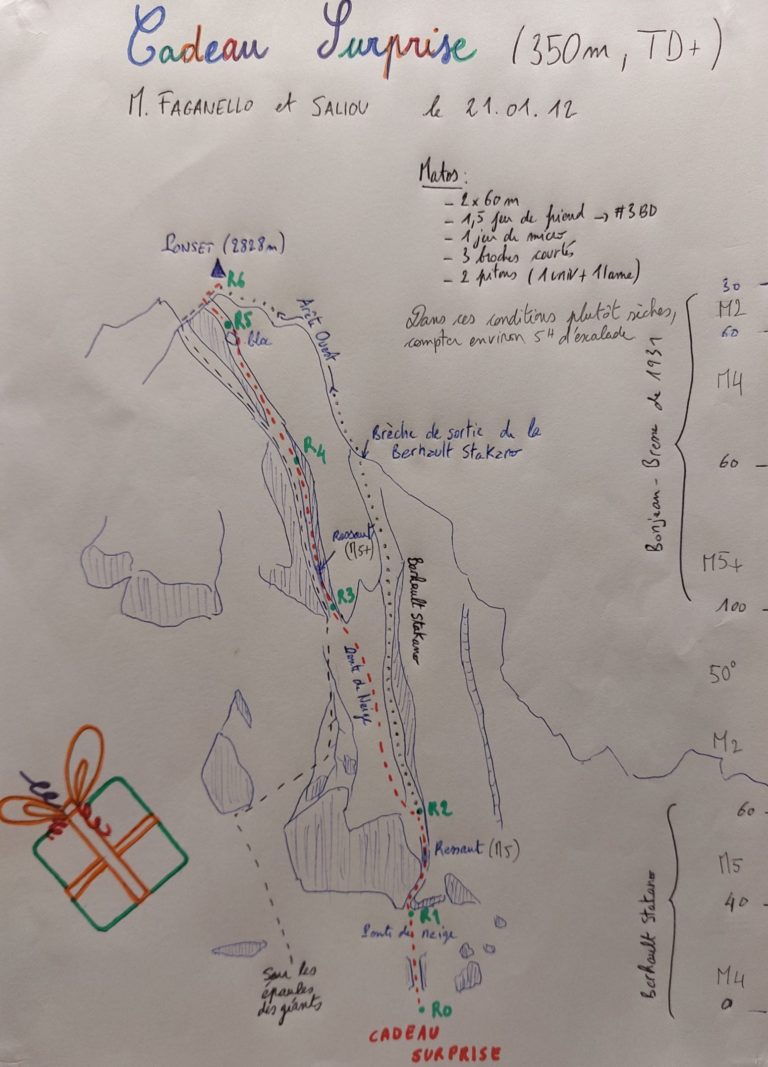 Cadeau Surprise (350m, TD+)
M. FAGANELLO et SALIOU le 21.01.12
Matos:
- 2x60m
- 1,5 jeu de friend → #3BD
- 1 jeu de micro
- 3 broches courtes
- 2 pitons (1 univ + 1 lame)
Dans ces conditions plutôt sèches,
compter environ 5H d'escalade
LONSET (2828m)
R6
R5
bloc
Arête Ouest
R4
Brèche de sortie de la
Berhault Stakano
Ressaut
(M5+)
R3
Berhault Stakano
Pente de Neige
R2
Ressaut (M5)
R1
Pente de neige
Sur les
épaules
des géants
R0
CADEAU
SURPRISE
30
M2
60
M4
60
M5+
100
50°
M2
60
M5
40
M4
0
Bonjean - Breme de 1931
Berhault Stakano